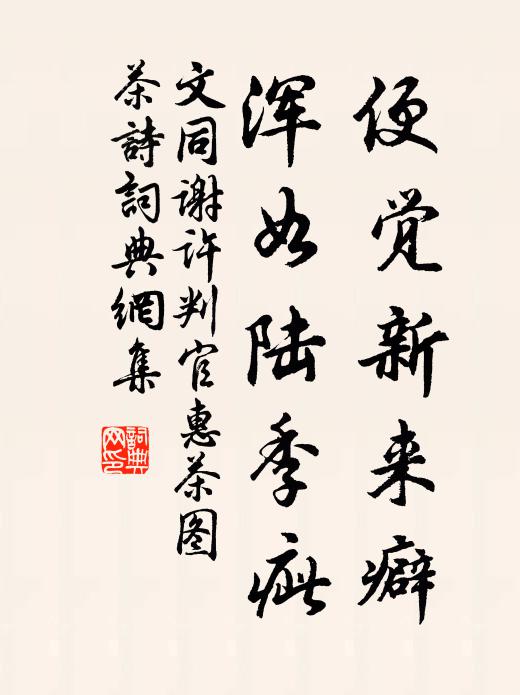 便觉新来癖
浑如陆季疵
文同谢许判官惠茶图
茶詩詞典網集
詞典网印